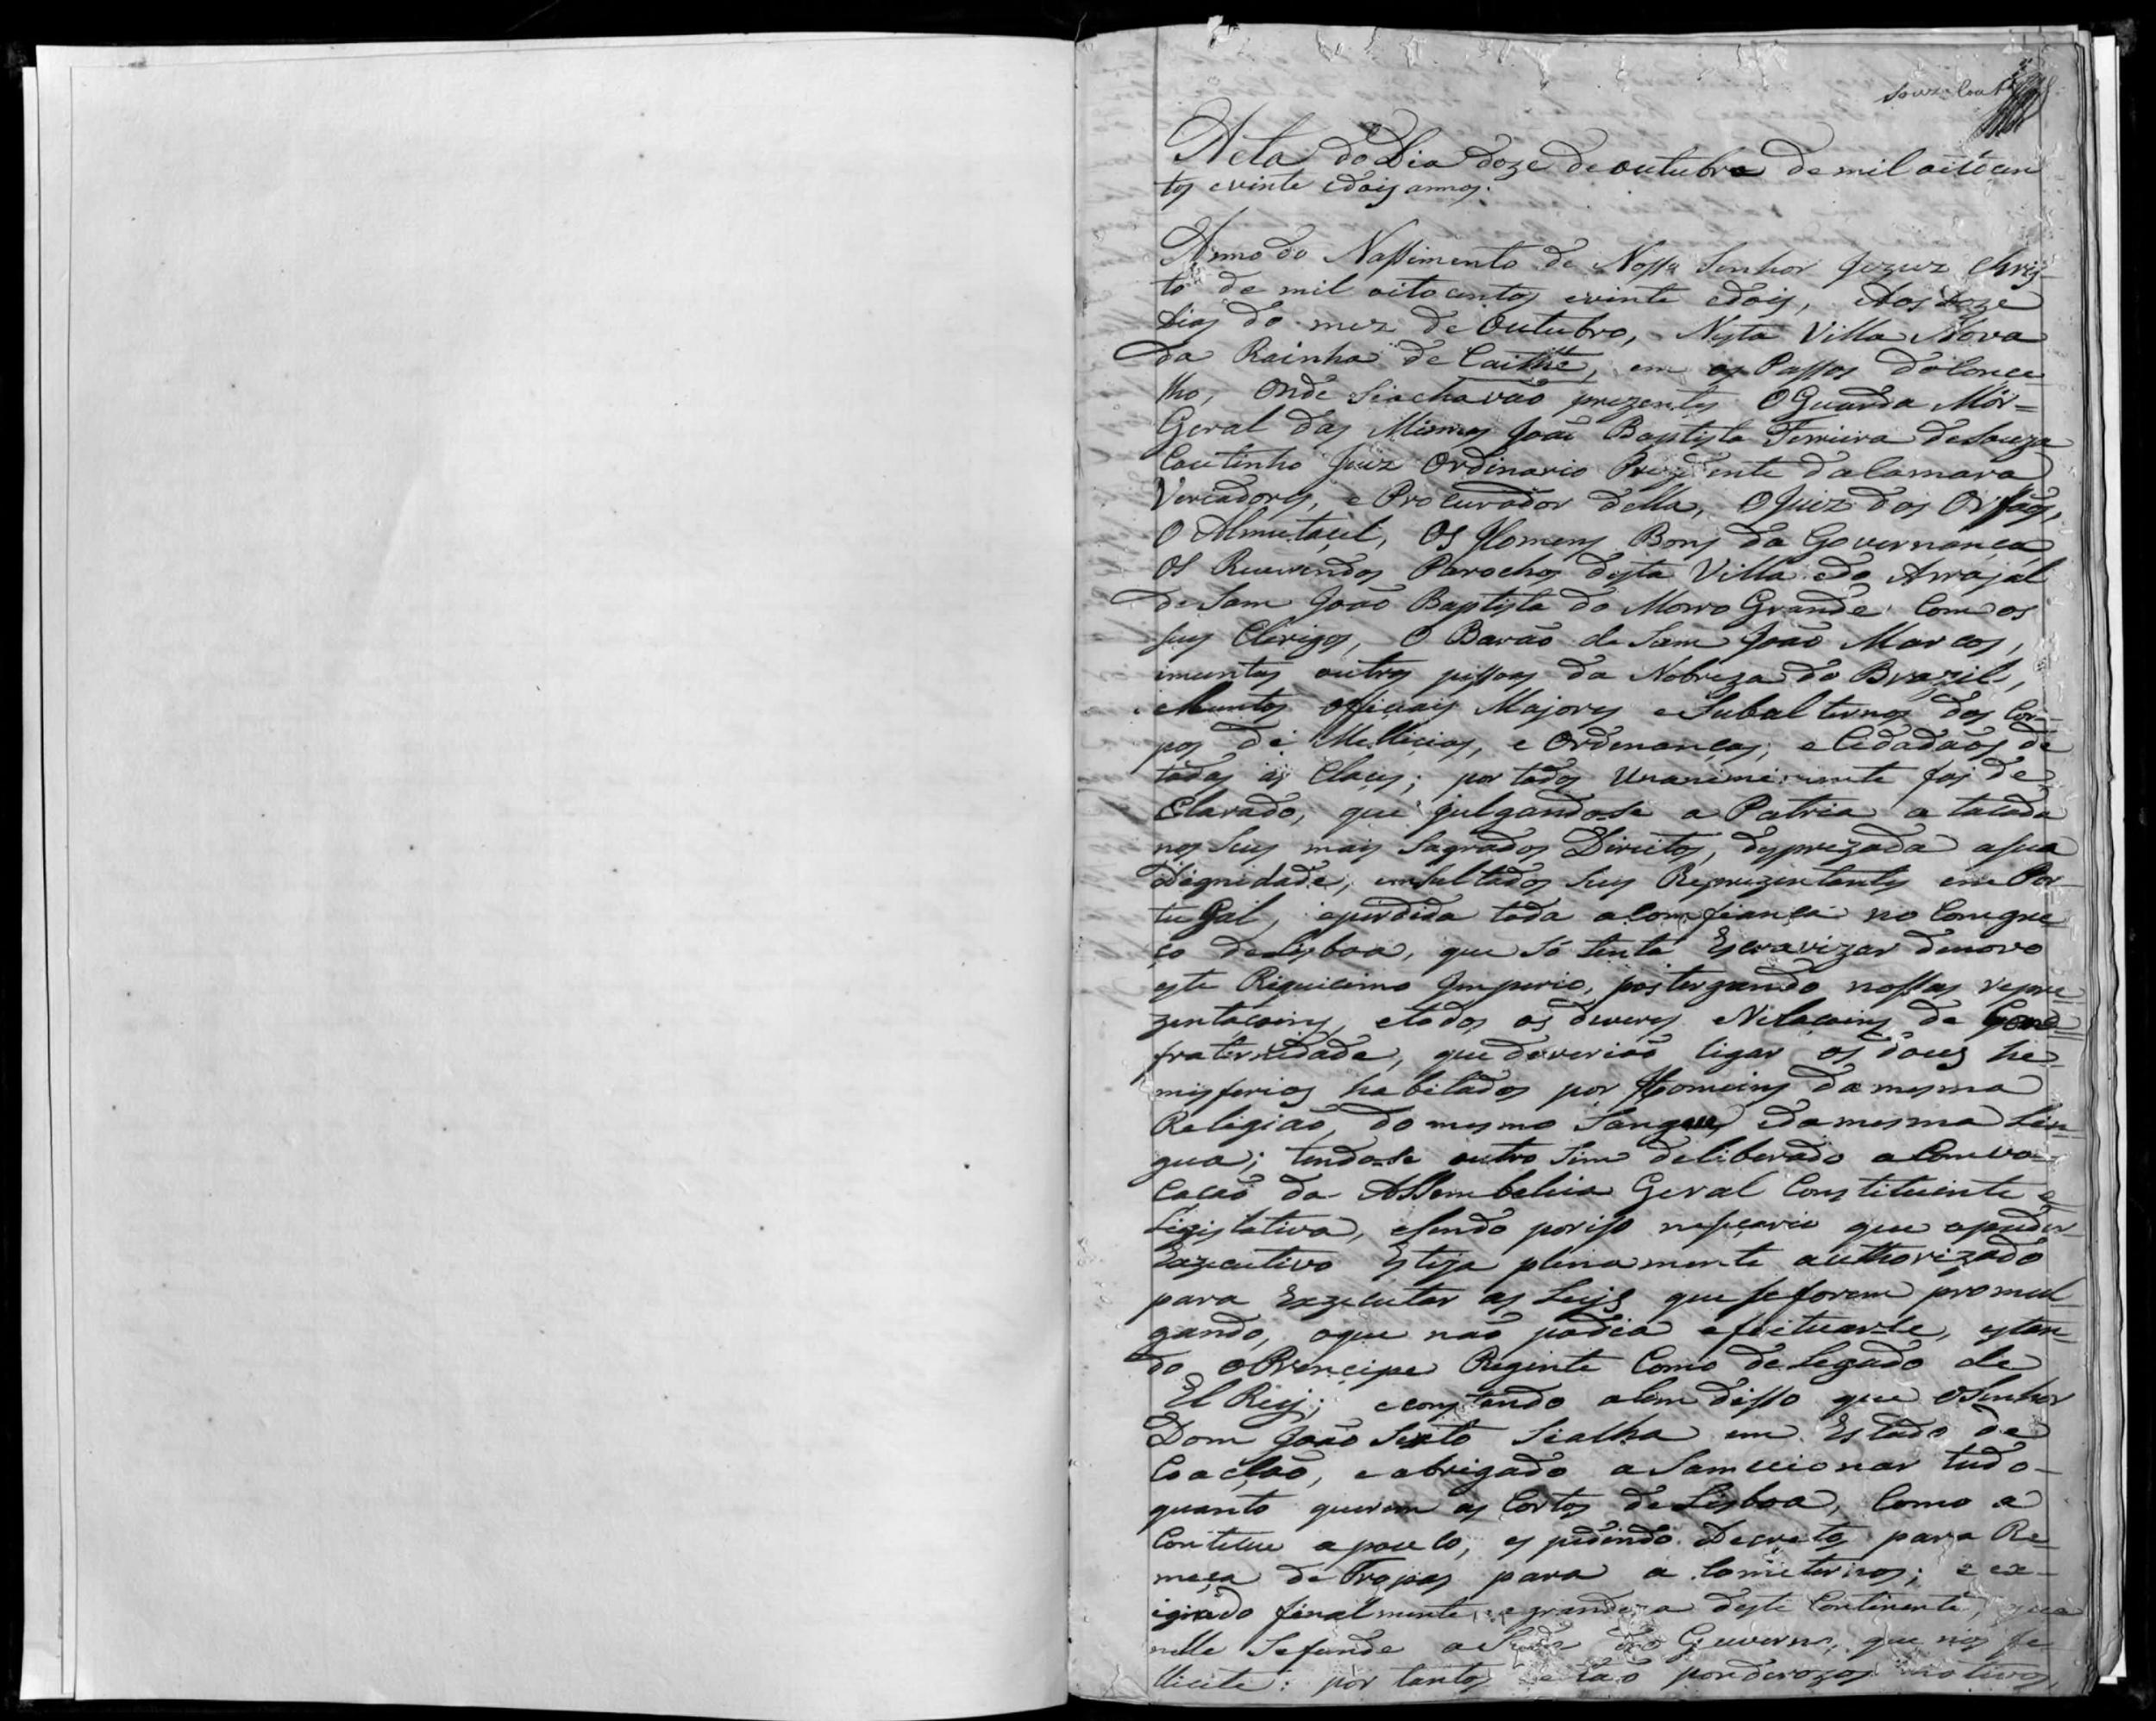 Acta do Dia doze de outubro de mil oitócen
tos e vinte e dois annos.
Anno do Nassimento de Nosso Senhor Jezuz Chris-
to de mil oito centos e vinte e dois, Aos doze
dias do mez de Outubro, Nesta Villa Nova
da Rainha de Caithé, em os Passos do Conce
lho, Onde Se achavão prezentes O Guarda Mór=
Geral das Minas João Baptista Ferreira de Souza
Coutinho Juiz Ordinario Prezidente da Camara
Vereadores, e Procurador della, O Juiz dos Orfãos,
O Almutacel, Os Homens Bons da Governança
Os Reverendos Parochos desta Villa e do Arrajal
de Sam João Baptista do Morro Grande Com os
seus Clerigos, O Barão de Sam João Marcos,
imuntas outras pissoas da Nobreza do Brazil,
e Muntos Oficiais Majores e Subalternos dos Cor-
pos de Mellicias, e Ordenanças, e Cidadãos de
todas as Claces; por todos Unanimimente foi de
Clarado, que julgando-se a Patria a tacada
nos Seus mais Sagrados Direitos, desprezada a sua
Dignidade, emsultados Seus Reprezentantes em Por
tugal, e perdida toda a Comfiança no Comgre
ço de Lisboa, que Só tenta Escravizar de novo
este Riquicimo Imperio, postergando nossas repre
zentaçoins, e todos os deveres e Relaçoins de
fraternidade, que deverião ligar os dous he
misferios habitados por Homeins da mesma
Religião, do mesmo Sangue, e da mesma Lin
gua; tendo-se outro Sim deliberado a Comvo=
cação da Assembeleia Geral Constituinte e
Legislativa, e Sendo por iso nesseçario que o poder
Exzecutivo Esteja plenamente authorizado
para Exzecutar as Leis que se forem promul
gando, o que não podia efeituar-se, estan
do o Principe Reginte Como delegado de
El Rey; e constando alem disso que o Senhor
Dom João Sexto Se acha em Estado de
Coacção, e obrigado a Samccionar tudo-
quanto querem as Cortes de Lisboa, Como a
Conteceu a pouco, espedindo Decretos para Re
meça de Tropas para a Cometernos; e ex-
igindo finalmente, a grandeza deste Continente, que
nelle Se funde a Sede do Guverno, que nos fe
llicite: por tantos e tão ponderozos motivos,